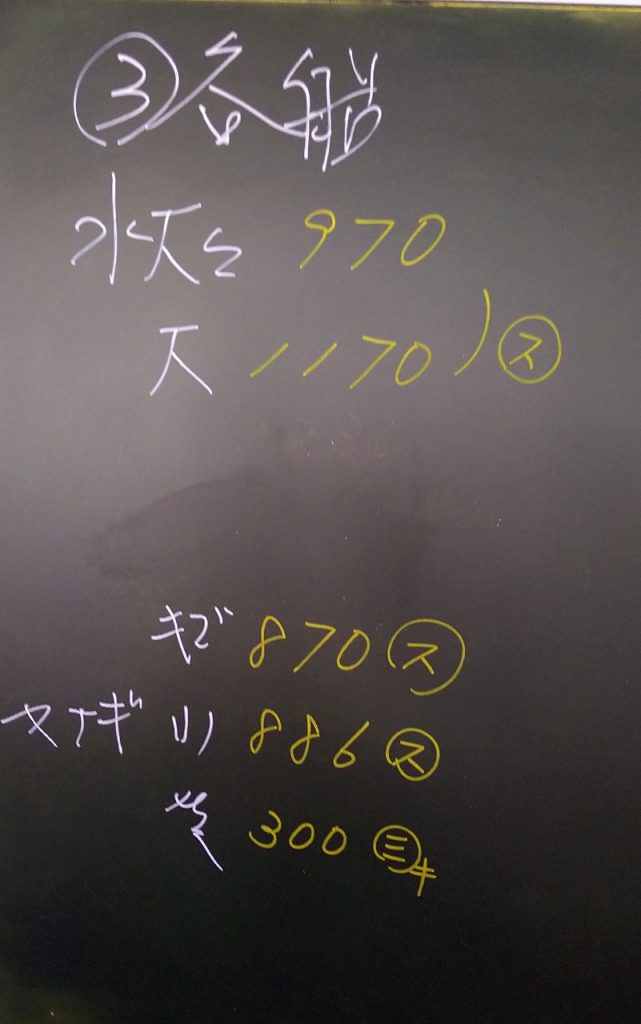 ③各船
水大小 970
大 1170 ) ㋜
キズ 870 ㋜
ヤナギ 小 886 ㋜
300 ㊂キ